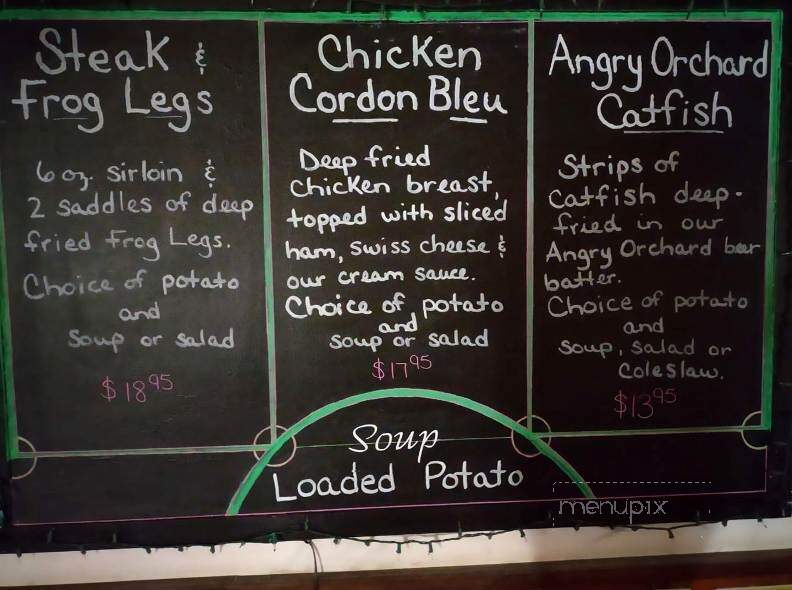 Steak &
Frog Legs
6 oz. sirloin &
2 saddles of deep
fried Frog Legs.
Choice of potato
and
Soup or salad
$18.95
Chicken
Cordon Bleu
Deep fried
chicken breast,
topped with sliced
ham, swiss cheese &
our cream sauce.
Choice of potato
and
soup or salad
$17.95
Angry Orchard
Catfish
Strips of
Catfish deep-
fried in our
Angry Orchard beer
batter.
Choice of potato
and
soup, salad or
coleslaw.
$13.95
Soup
Loaded Potato
menupix